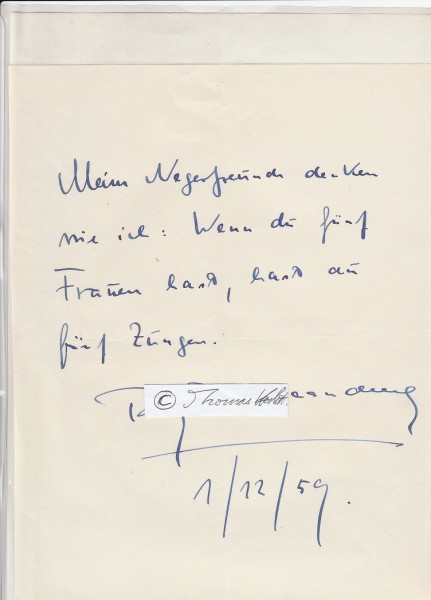 Meine Negerfreunde denken
wie ich: Wenn du fünf
Frauen hast, hast du
fünf Zungen.
© Thomas
1/12/59.